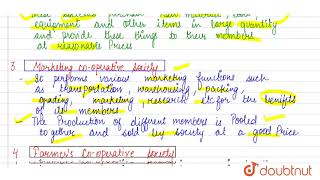 equipment and other items in large quantity
and provide these things to their members
at reasonable Prices
3. Marketing co-operative society
→ It performs various marketing functions such
as transportation, warehousing, packing,
grading, marketing research etc for the benefits
of its members
→ The Production of different members is Pooled
together and sold by society at a good Price
4 Farmer's Co-operative society
doubtnut